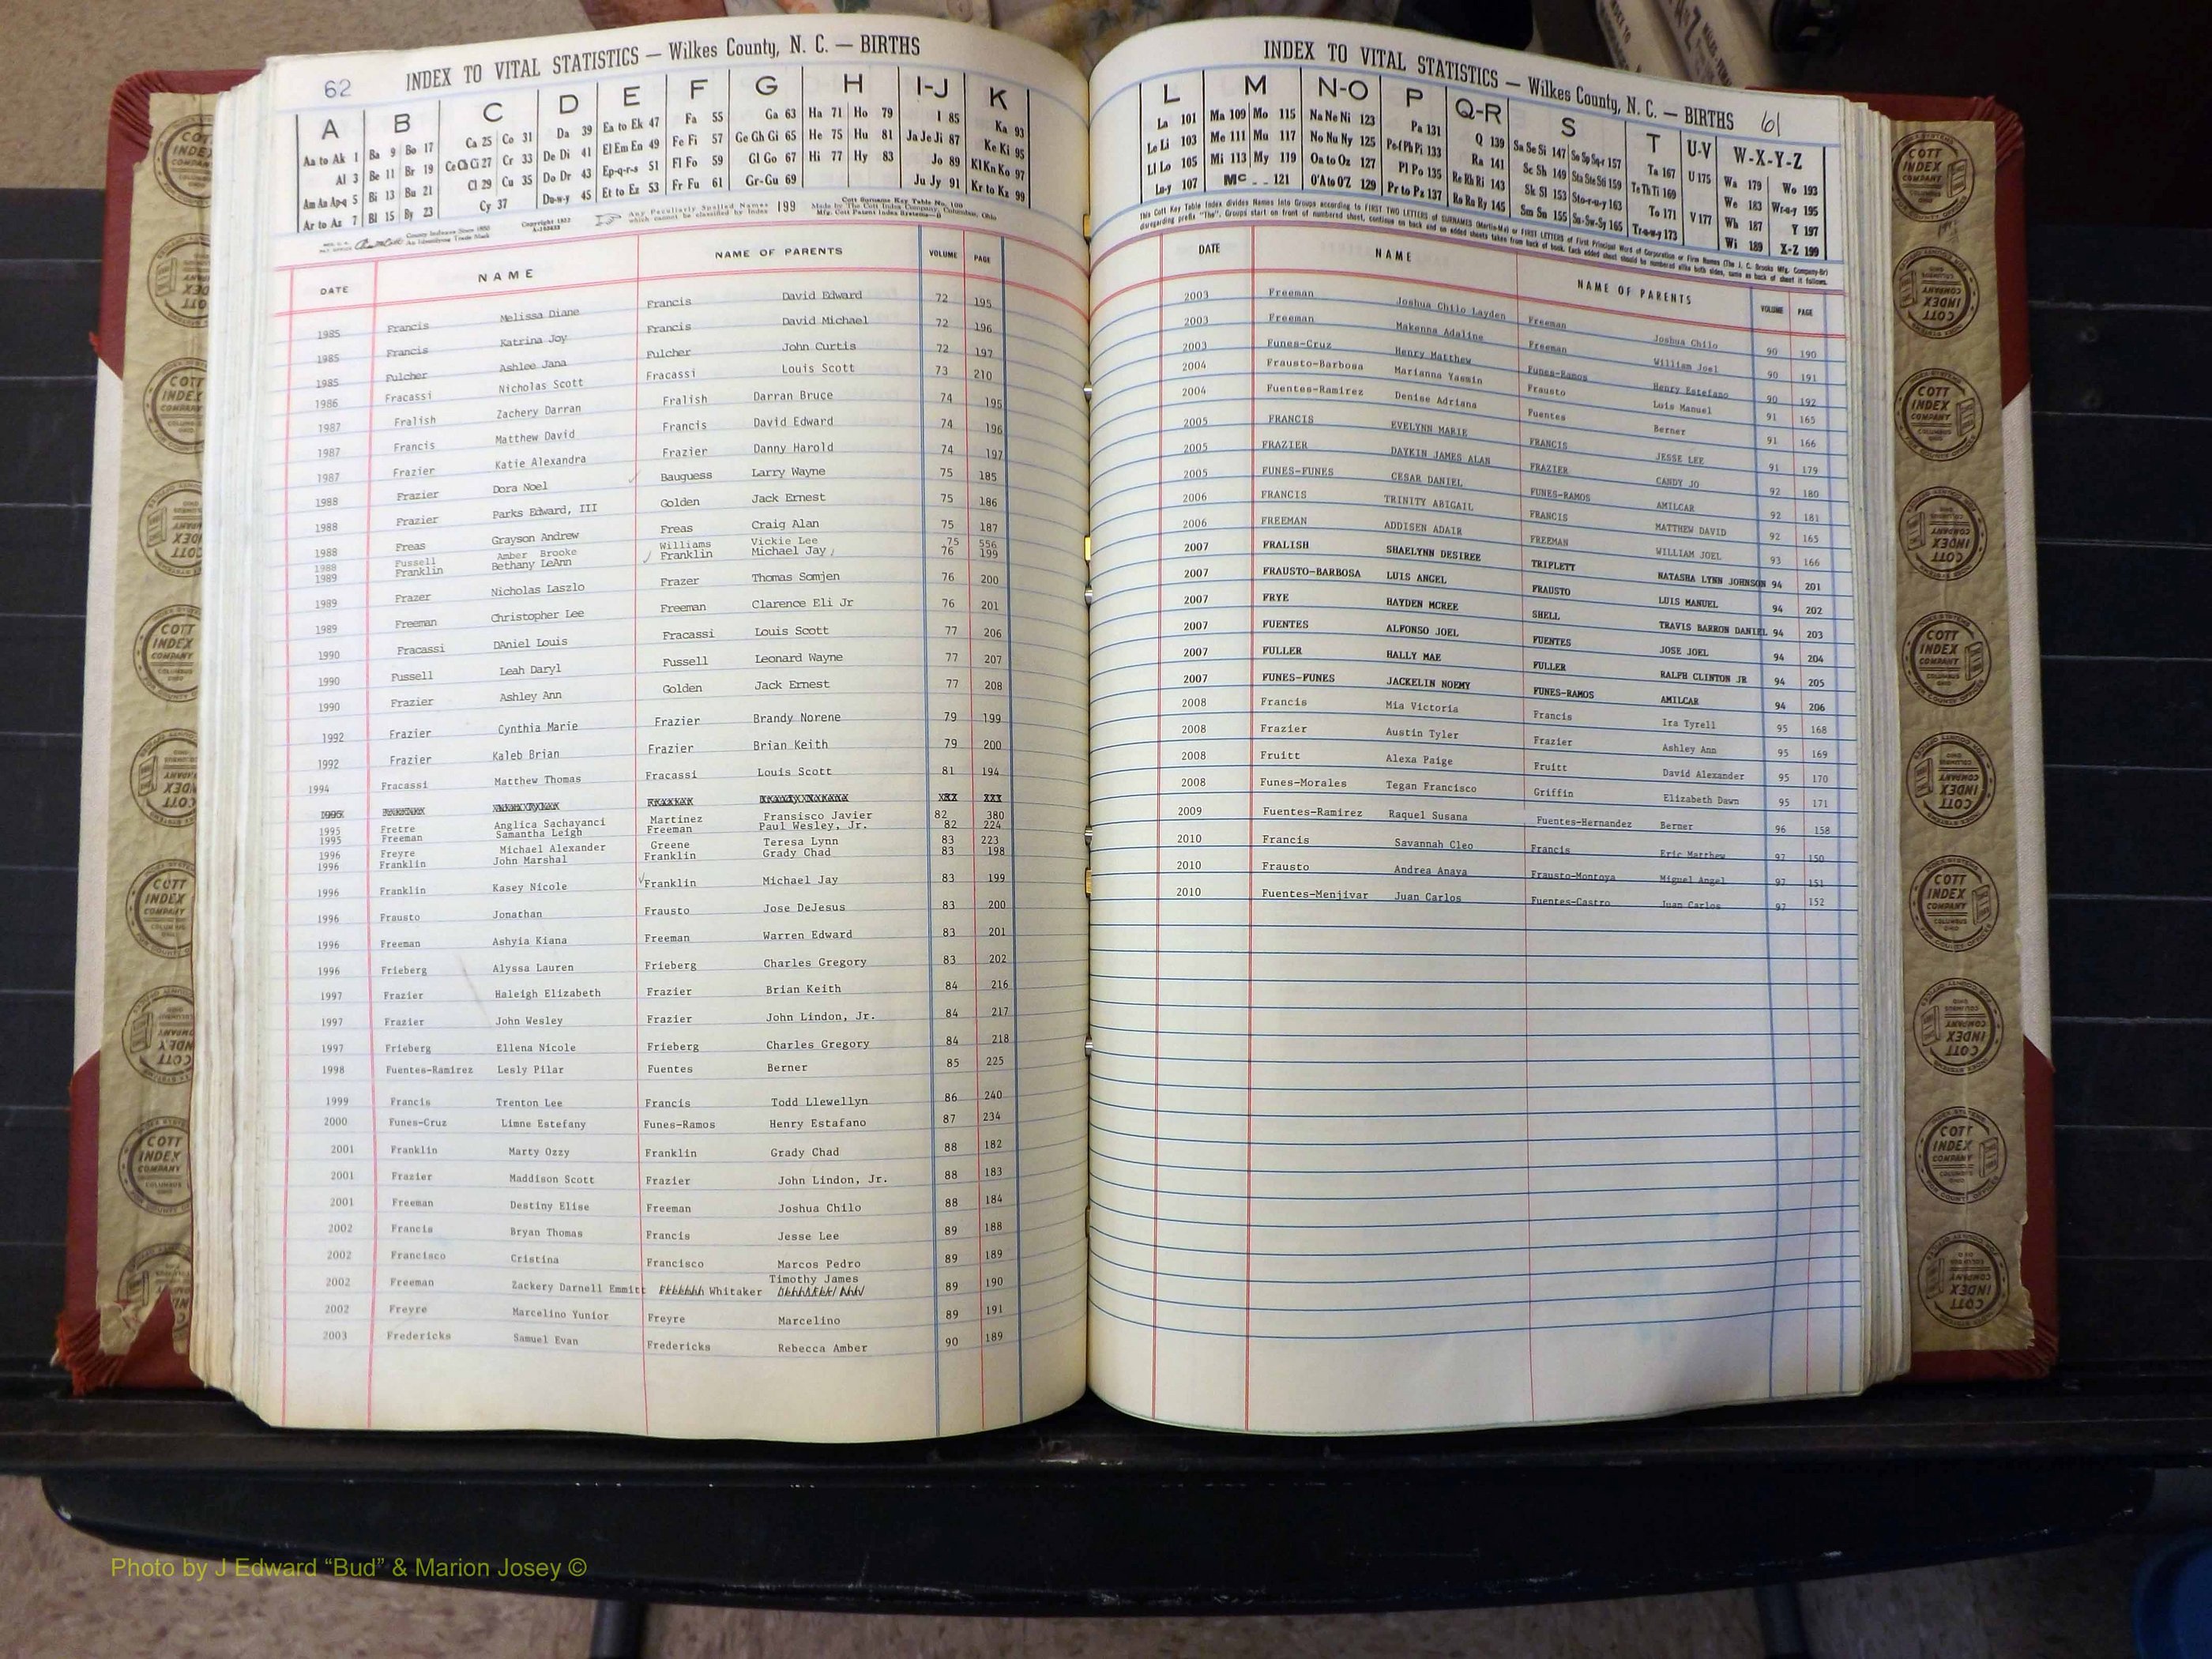 62
INDEX TO VITAL STATISTICS — Wilkes County, N. C. — BIRTHS
A B C D E F G H I-J K
Aa to Ak 1 Ba 9 Bo 17 Ca 25 Co 31 Da 39 Ea to Ek 47 Fa 55 Ga 63 Ha 71 Ho 79 I 85 Ka 93
Al 3 Be 11 Br 19 Ce Ch Ci 27 Cr 33 De Di 41 El Em En 49 Fe Fi 57 Ge Gh Gi 65 He 75 Hu 81 Ja Je Ji 87 Ke Ki 95
Am An Ap-q 5 Bi 13 Bu 21 Cl 29 Cu 35 Do Dr 43 Ep-q-r-s 51 Fl Fo 59 Gl Go 67 Hi 77 Hy 83 Jo 89 Kl Kn Ko 97
Ar to Az 7 Bl 15 By 23 Cy 37 Du-w-y 45 Et to Ez 53 Fr Fu 61 Gr-Gu 69 Ju Jy 91 Kr to Kz 99
County Indexes Since 1850
An Identifying Trade Mark
Any Peculiarly Spelled Names which cannot be classified by Index 199
Cott Surname Key Table No. 100
Made by The Cott Index Company, Columbus, Ohio
DATE NAME NAME OF PARENTS VOLUME PAGE
1985 Francis Melissa Diane Francis David Edward 72 195
1985 Francis Katrina Joy Francis David Michael 72 196
1985 Fulcher Ashlee Jana Fulcher John Curtis 72 197
1986 Fracassi Nicholas Scott Fracassi Louis Scott 73 210
1987 Fralish Zachery Darran Fralish Darran Bruce 74 195
1987 Francis Matthew David Francis David Edward 74 196
1987 Frazier Katie Alexandra Frazier Danny Harold 74 197
1988 Frazier Dora Noel Bauguess Larry Wayne 75 185
1988 Frazier Parks Edward, III Golden Jack Ernest 75 186
1988 Freas Grayson Andrew Freas Craig Alan 75 187
1988 Fussell Amber Brooke Williams Vickie Lee 75 556
1989 Franklin Bethany LeAnn Franklin Michael Jay 76 199
1989 Frazer Nicholas Laszlo Frazer Thomas Somjen 76 200
1989 Freeman Christopher Lee Freeman Clarence Eli Jr 76 201
1990 Fracassi DAniel Louis Fracassi Louis Scott 77 206
1990 Fussell Leah Daryl Fussell Leonard Wayne 77 207
1990 Frazier Ashley Ann Golden Jack Ernest 77 208
1992 Frazier Cynthia Marie Frazier Brandy Norene 79 199
1992 Frazier Kaleb Brian Frazier Brian Keith 79 200
1994 Fracassi Matthew Thomas Fracassi Louis Scott 81 194
1995 Fretre Anglica Sachayanci Martinez Fransisco Javier 82 380
1995 Freeman Samantha Leigh Freeman Paul Wesley, Jr. 82 224
1996 Freyre Michael Alexander Greene Teresa Lynn 83 223
1996 Franklin John Marshal Franklin Grady Chad 83 198
1996 Franklin Kasey Nicole Franklin Michael Jay 83 199
1996 Frausto Jonathan Frausto Jose DeJesus 83 200
1996 Freeman Ashyia Kiana Freeman Warren Edward 83 201
1996 Frieberg Alyssa Lauren Frieberg Charles Gregory 83 202
1997 Frazier Haleigh Elizabeth Frazier Brian Keith 84 216
1997 Frazier John Wesley Frazier John Lindon, Jr. 84 217
1997 Frieberg Ellena Nicole Frieberg Charles Gregory 84 218
1998 Fuentes-Ramirez Lesly Pilar Fuentes Berner 85 225
1999 Francis Trenton Lee Francis Todd Llewellyn 86 240
2000 Funes-Cruz Limne Estefany Funes-Ramos Henry Estafano 87 234
2001 Franklin Marty Ozzy Franklin Grady Chad 88 182
2001 Frazier Maddison Scott Frazier John Lindon, Jr. 88 183
2001 Freeman Destiny Elise Freeman Joshua Chilo 88 184
2002 Francis Bryan Thomas Francis Jesse Lee 89 188
2002 Francisco Cristina Francisco Marcos Pedro 89 189
2002 Freeman Zackery Darnell Emmitt Whitaker Timothy James 89 190
2002 Freyre Marcelino Yunior Freyre Marcelino 89 191
2003 Fredericks Samuel Evan Fredericks Rebecca Amber 90 189
INDEX TO VITAL STATISTICS — Wilkes County, N. C. — BIRTHS 61
L M N-O P Q-R S T U-V W-X-Y-Z
La 101 Ma 109 Mo 115 Na Ne Ni 123 Pa 131 Q 139 Sa Se Si 147 So Sp Sq-r 157 Ta 167 U 175 Wa 179 Wo 193
Le Li 103 Me 111 Mu 117 No Nu Ny 125 Pe-f Ph Pi 133 Ra 141 Sc Sh 149 Sta Ste Sti 159 Te Th Ti 169 We 183 Wr-u-y 195
Ll Lo 105 Mi 113 My 119 Oa to Oz 127 Pl Po 135 Re Rh Ri 143 Sk Sl 153 Sto-r-u-y 163 To 171 V 177 Wh 187 Y 197
Lu-y 107 Mc 121 O'A to O'Z 129 Pr to Pz 137 Ro Ru Ry 145 Sm Sn 155 Su-Sw-Sy 165 Tr-u-w-y 173 Wi 189 X-Z 199
This Cott Key Table Index divides Names into Groups according to FIRST TWO LETTERS of SURNAMES (Martin-Ma) or FIRST LETTERS of First Principal Word of Corporation or Firm Names (The J. C. Brooks Mfg. Company-Br)
disregarding prefix "The". Groups start on front of numbered sheet, continue on back and on added sheets taken from back of book. Each added sheet should be numbered alike both sides, same as back of sheet it follows.
DATE NAME NAME OF PARENTS VOLUME PAGE
2003 Freeman Joshua Chilo Layden Freeman Joshua Chilo 90 190
2003 Freeman Makenna Adaline Freeman William Joel 90 191
2003 Funes-Cruz Henry Matthew Funes-Ramos Henry Estefano 90 192
2004 Frausto-Barbosa Marianna Yasmin Frausto Luis Manuel 91 165
2004 Fuentes-Ramirez Denise Adriana Fuentes Berner 91 166
2005 FRANCIS EVELYNN MARIE FRANCIS JESSE LEE 91 179
2005 FRAZIER DAYKIN JAMES ALAN FRAZIER CANDY JO 92 180
2005 FUNES-FUNES CESAR DANIEL FUNES-RAMOS AMILCAR 92 181
2006 FRANCIS TRINITY ABIGAIL FRANCIS MATTHEW DAVID 92 165
2006 FREEMAN ADDISEN ADAIR FREEMAN WILLIAM JOEL 93 166
2007 FRALISH SHAELYNN DESIREE TRIPLETT NATASHA LYNN JOHNSON 94 201
2007 FRAUSTO-BARBOSA LUIS ANGEL FRAUSTO LUIS MANUEL 94 202
2007 FRYE HAYDEN MCREE SHELL TRAVIS BARRON DANIEL 94 203
2007 FUENTES ALFONSO JOEL FUENTES JOSE JOEL 94 204
2007 FULLER HALLY MAE FULLER RALPH CLINTON JR 94 205
2007 FUNES-FUNES JACKELIN NOEMY FUNES-RAMOS AMILCAR 94 206
2008 Francis Mia Victoria Francis Ira Tyrell 95 168
2008 Frazier Austin Tyler Frazier Ashley Ann 95 169
2008 Fruitt Alexa Paige Fruitt David Alexander 95 170
2008 Funes-Morales Tegan Francisco Griffin Elizabeth Dawn 95 171
2009 Fuentes-Ramirez Raquel Susana Fuentes-Hernandez Berner 96 158
2010 Francis Savannah Cleo Francis Eric Matthew 97 150
2010 Frausto Andrea Anaya Frausto-Montoya Miguel Angel 97 151
2010 Fuentes-Menjivar Juan Carlos Fuentes-Castro Juan Carlos 97 152
COTT INDEX COMPANY COLUMBUS OHIO
Photo by J Edward “Bud” & Marion Josey ©